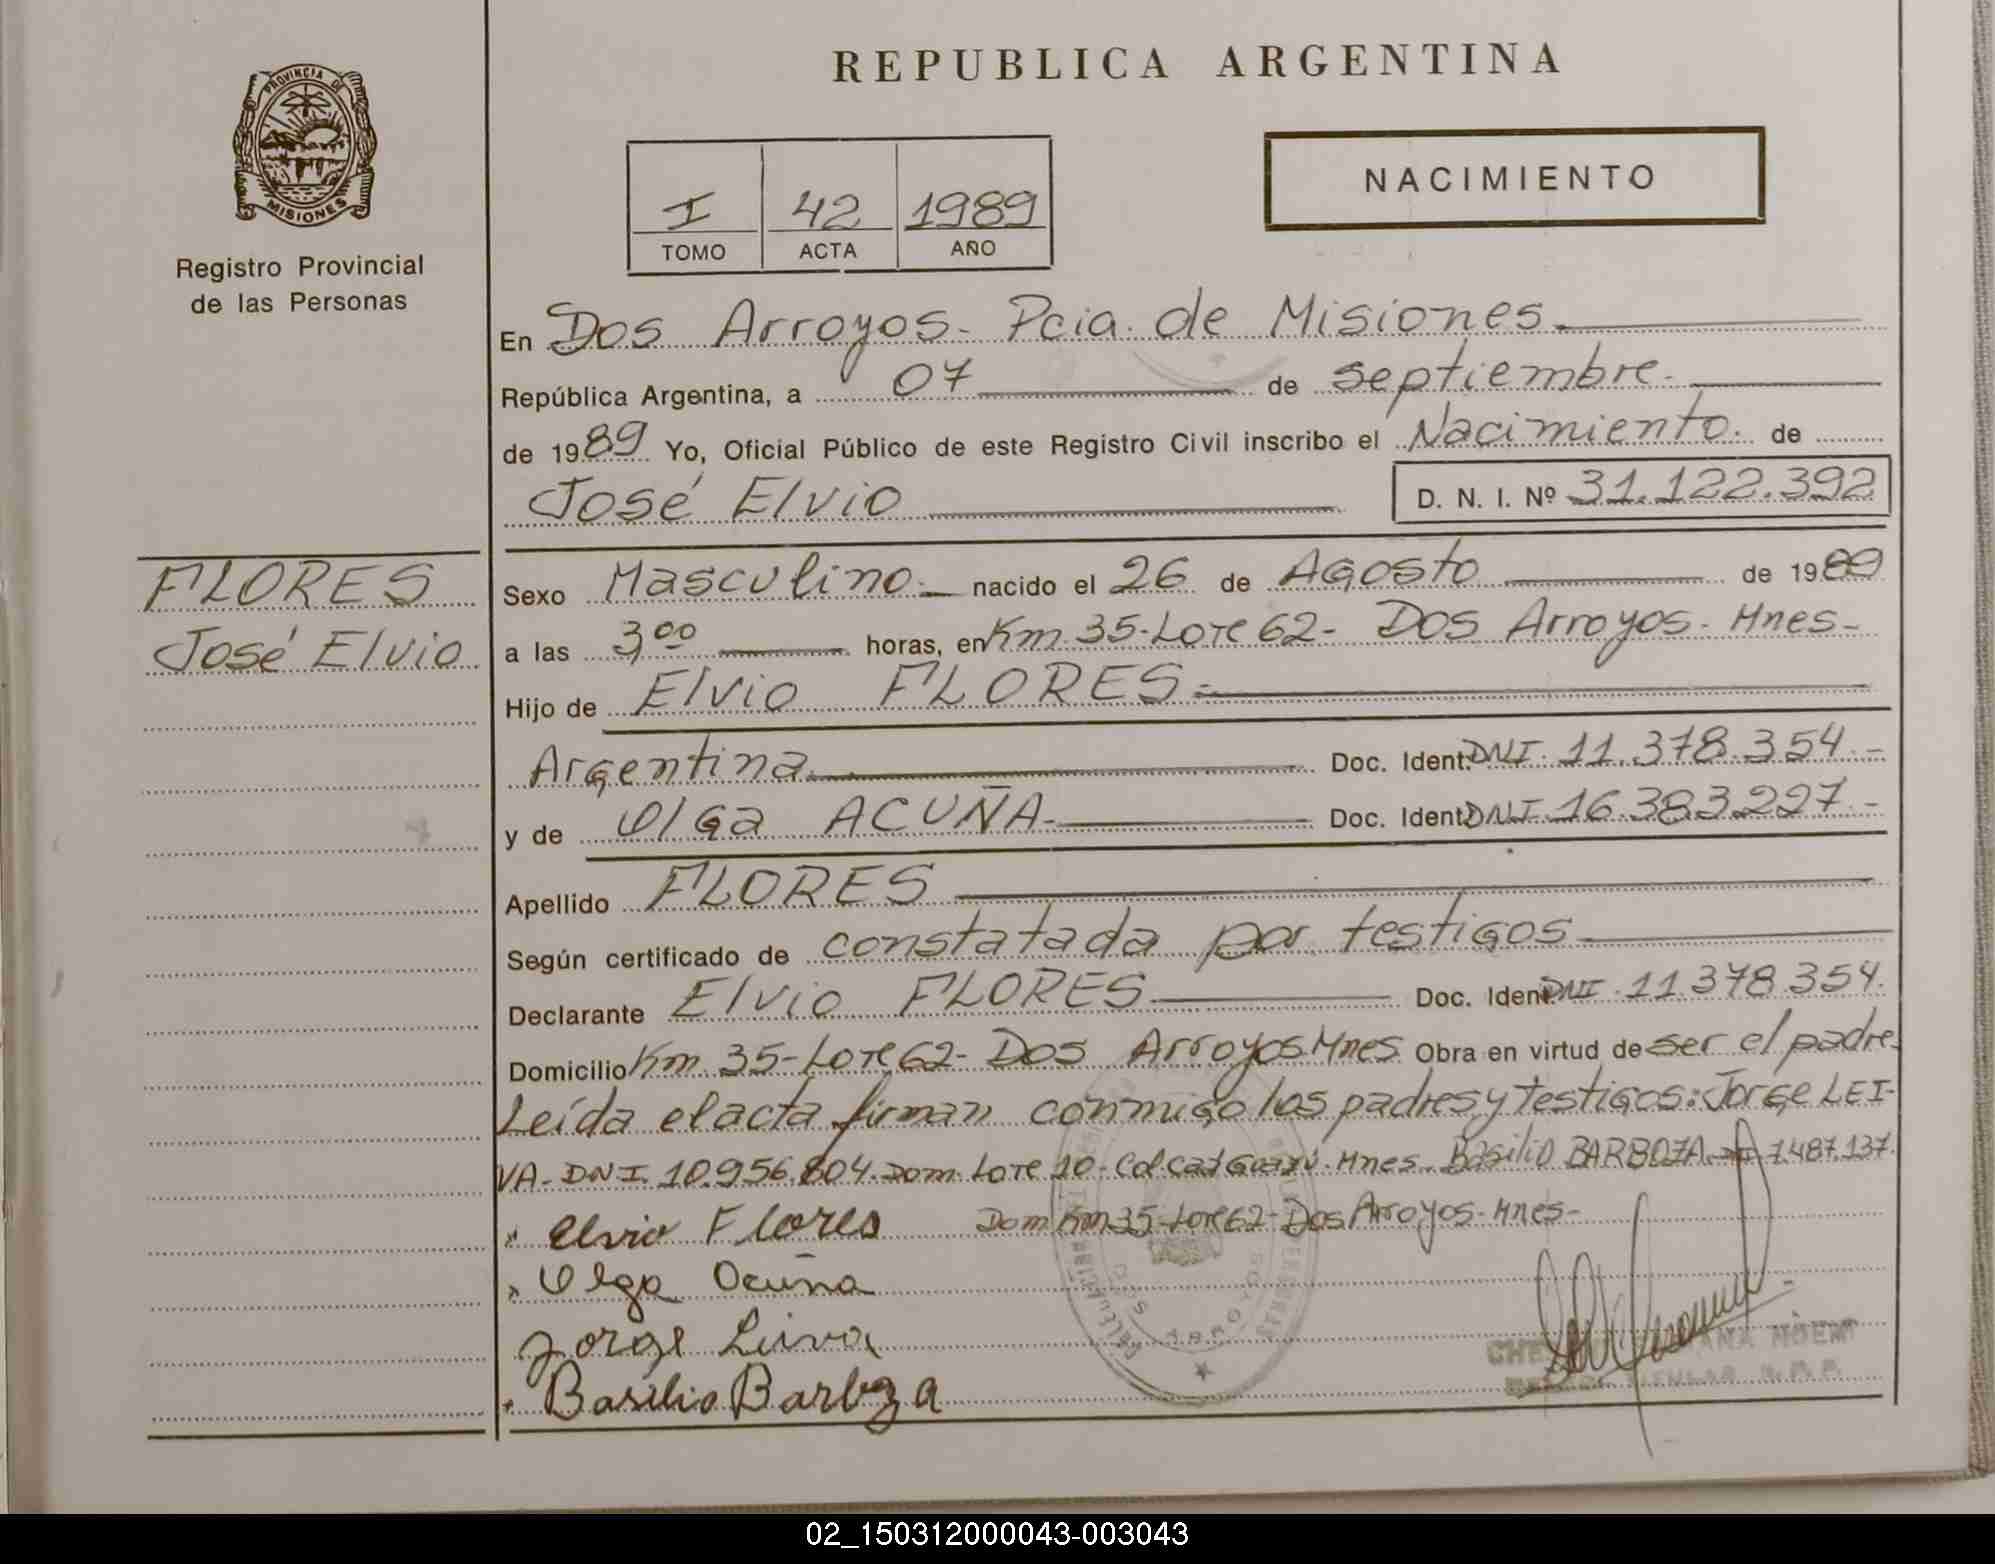 PROVINCIA DE
MISIONES
Registro Provincial
de las Personas
FLORES
José Elvio
REPUBLICA ARGENTINA
NACIMIENTO
I 42 1989
TOMO ACTA AÑO
En Dos Arroyos - Pcia. de Misiones.
República Argentina, a 07 de septiembre.
de 1989 Yo, Oficial Público de este Registro Civil inscribo el Nacimiento. de
José Elvio D. N. I. Nº 31.122.392
Sexo Masculino.- nacido el 26 de Agosto de 1989
a las 3,00 horas, en Km. 35-Lote 62- Dos Arroyos - Mnes-
Hijo de Elvio FLORES.-
Argentina. Doc. Ident. DNI. 11.378.354.-
y de Olga ACUÑA. Doc. Ident. DNI. 16.383.227.-
Apellido FLORES
Según certificado de constatada por testigos
Declarante Elvio FLORES Doc. Ident. DNI. 11.378.354.
Domicilio Km. 35-Lote 62- Dos Arroyos Mnes Obra en virtud de ser el padre.
Leída el acta firman conmigo los padres y testigos: Jorge LEI-
VA- DNI. 10.956.804. Dom. Lote 10- Col. Mnes. Basilio BARBOZA 7.487.137.
Elvio Flores Dom Km 35-Lote 62- Dos Arroyos - Mnes-
Olga Ocuña
Jorge Leiva
Basilio Barboza
DOS ARROYOS
NOEMI
TITULAR
02_150312000043-003043